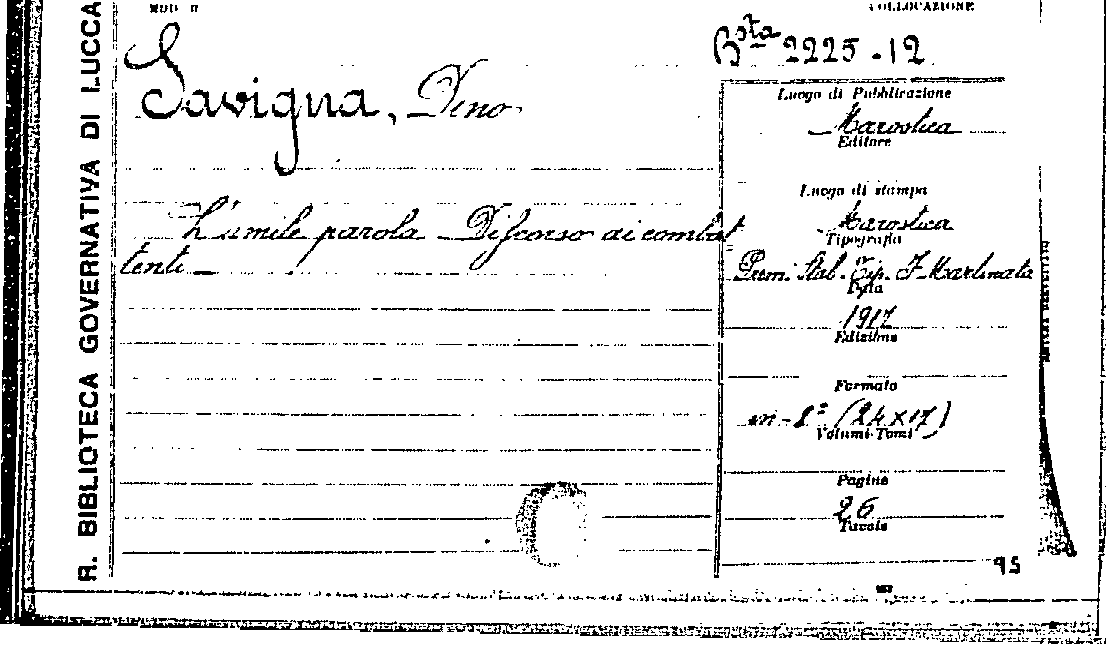 R. BIBLIOTECA GOVERNATIVA DI LUCCA
MOD. II
COLLOCAZIONE
Bsta 2225.12
Savigna, Dino
L'umile parola - Discorso ai combat
tenti -
Luogo di Pubblicazione
Marostica
Editore
Luogo di stampa
Marostica
Tipografia
Prem. Stab. Tip. F. Martinato
Data
1917
Edizione
Formato
in-8° (24x17)
Volumi-Tomi
Pagine
26
Tavole
95